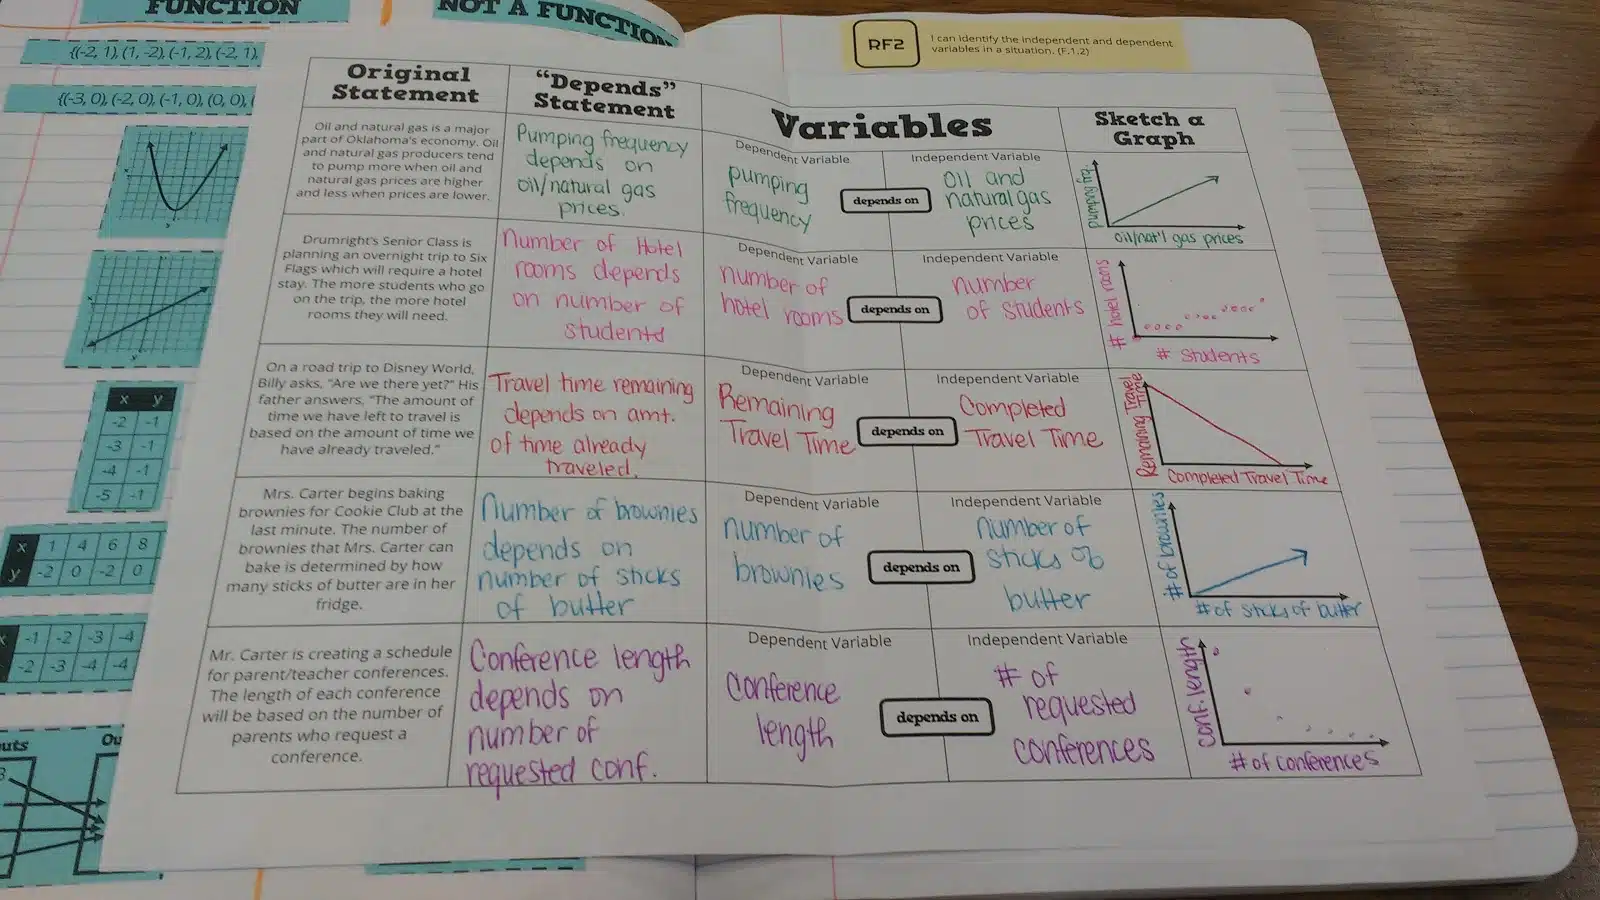 FUNCTION
NOT A FUNCTION
{(-2, 1), (1, -2), (-1, 2), (-2, 1),
{(-3, 0), (-2, 0), (-1, 0), (0, 0), (
x y
-2 -1
-3 -1
-4 -1
-5 -1
x 1 4 6 8
y -2 0 -2 0
x -1 -2 -3 -4
-2 -3 -4 -4
uts
Ou
RF2
I can identify the independent and dependent
variables in a situation. (F.1.2)
Original
Statement
“Depends”
Statement
Variables
Sketch a
Graph
Oil and natural gas is a major
part of Oklahoma's economy. Oil
and natural gas producers tend
to pump more when oil and
natural gas prices are higher
and less when prices are lower.
Pumping frequency
depends on
oil/natural gas
prices.
Dependent Variable
pumping
frequency
depends on
Independent Variable
oil and
natural gas
prices
pumping frq.
oil/nat'l gas prices
Drumright's Senior Class is
planning an overnight trip to Six
Flags which will require a hotel
stay. The more students who go
on the trip, the more hotel
rooms they will need.
Number of Hotel
rooms depends
on number of
students
Dependent Variable
number of
hotel rooms
depends on
Independent Variable
number
of students
# hotel rooms
# students
On a road trip to Disney World,
Billy asks, “Are we there yet?” His
father answers, “The amount of
time we have left to travel is
based on the amount of time we
have already traveled.”
Travel time remaining
depends on amt.
of time already
traveled.
Dependent Variable
Remaining
Travel Time
depends on
Independent Variable
Completed
Travel Time
Remaining Travel
Time
Completed Travel Time
Mrs. Carter begins baking
brownies for Cookie Club at the
last minute. The number of
brownies that Mrs. Carter can
bake is determined by how
many sticks of butter are in her
fridge.
Number of brownies
depends on
number of sticks
of butter
Dependent Variable
number of
brownies
depends on
Independent Variable
number of
sticks of
butter
# of brownies
# of sticks of butter
Mr. Carter is creating a schedule
for parent/teacher conferences.
The length of each conference
will be based on the number of
parents who request a
conference.
Conference length
depends on
number of
requested conf.
Dependent Variable
Conference
length
depends on
Independent Variable
# of
requested
conferences
conf. length
# of conferences